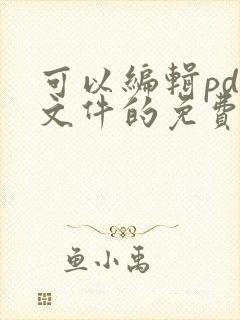 可以編輯pd
文件的免費
鱼小禹